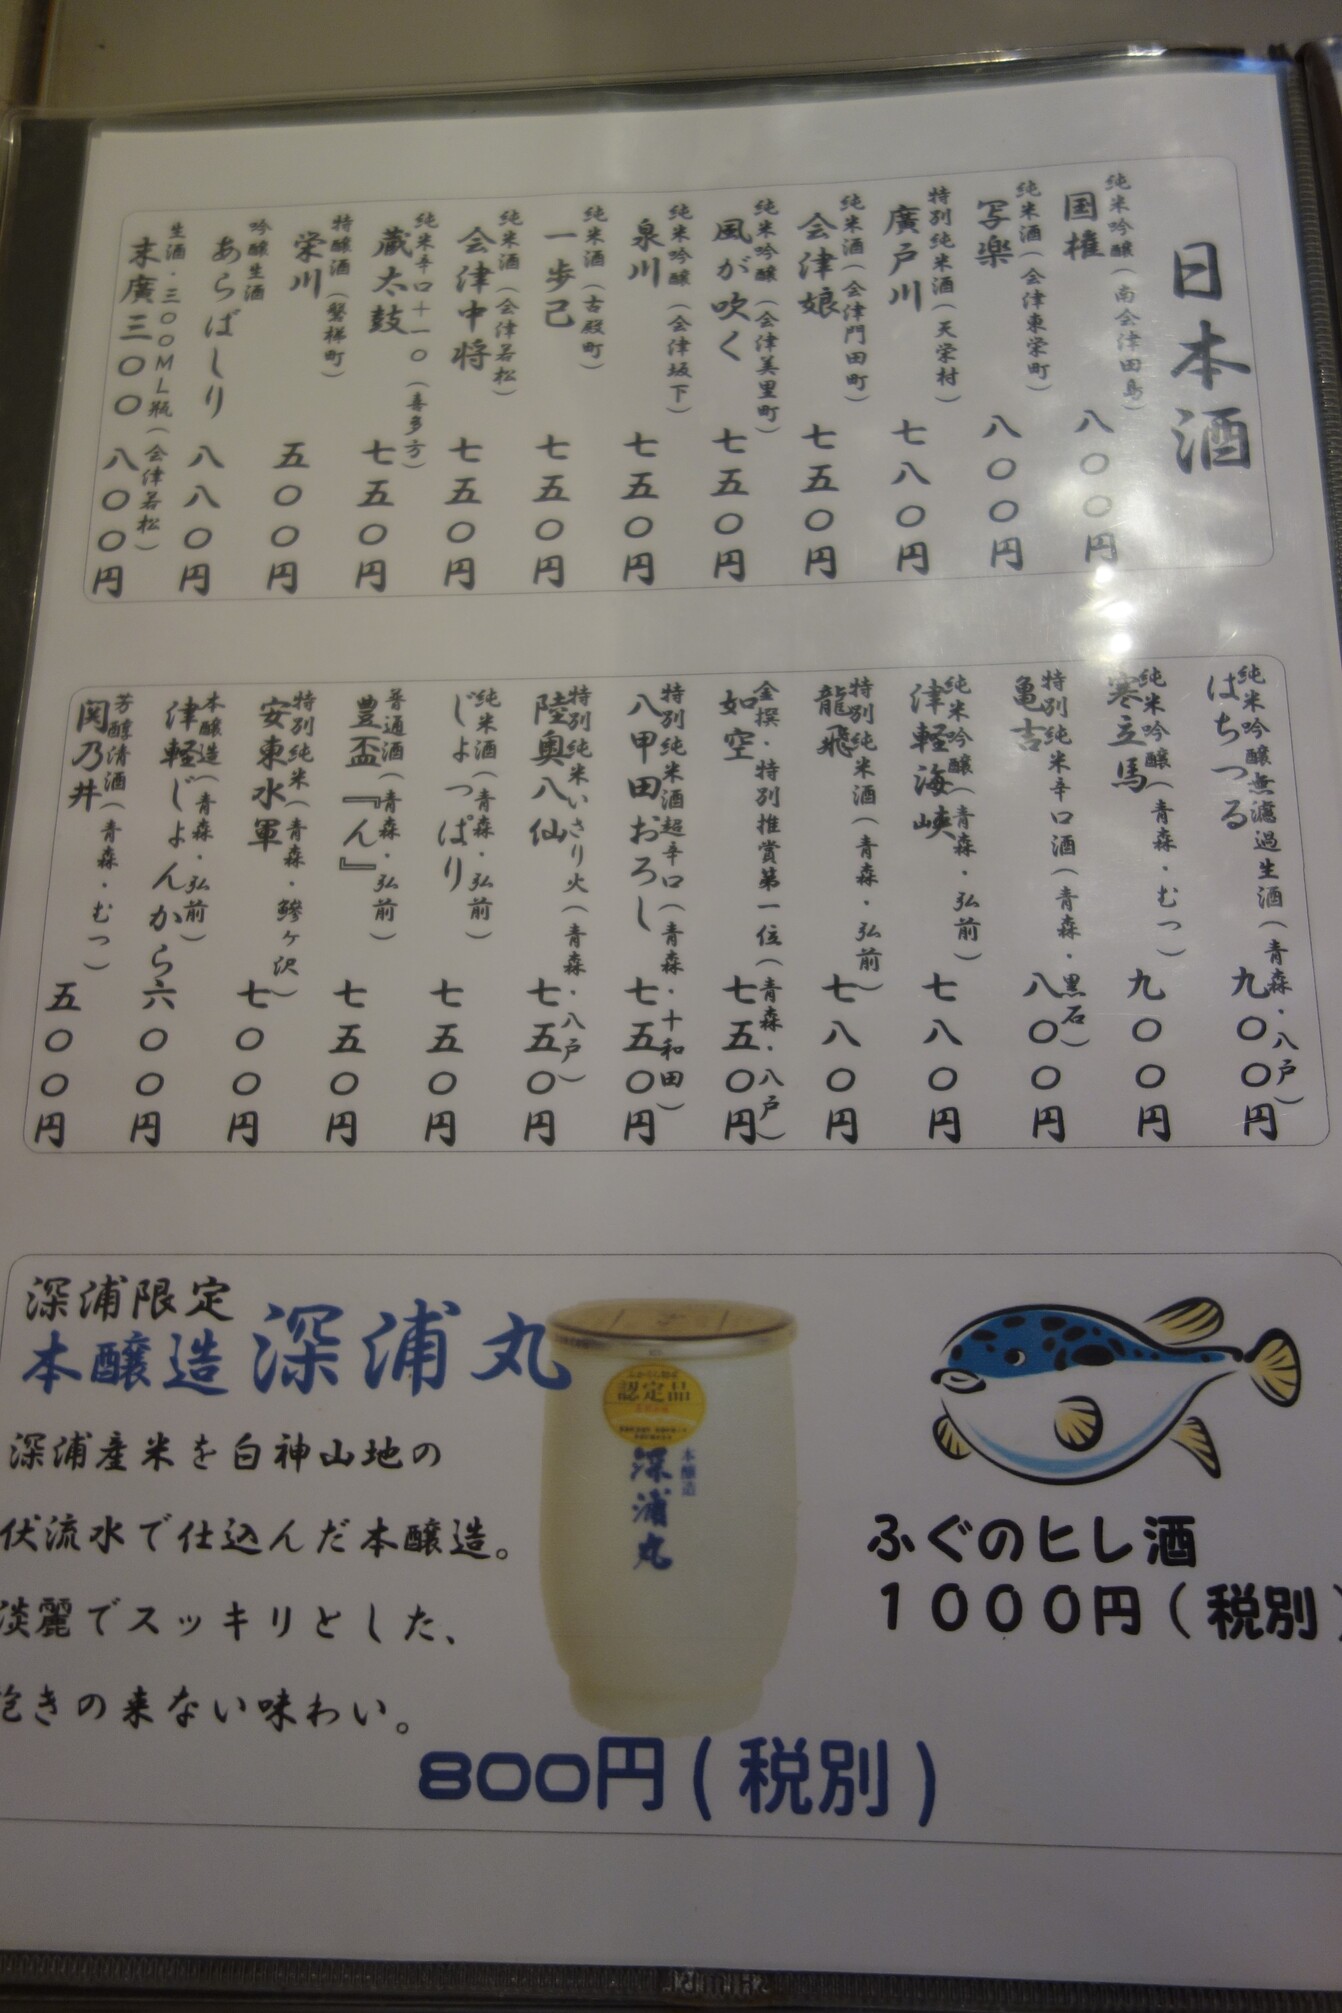 日本酒
純米吟醸(南会津田島)
国権 八〇〇円
純米酒(会津東栄町)
写楽 八〇〇円
特別純米酒(天栄村)
廣戸川 七八〇円
純米酒(会津門田町)
会津娘 七五〇円
純米吟醸(会津美里町)
風が吹く 七五〇円
純米吟醸(会津坂下)
泉川 七五〇円
純米酒(古殿町)
一歩己 七五〇円
純米酒(会津若松)
会津中将 七五〇円
純米辛口+一〇(喜多方)
蔵太鼓 七五〇円
特醸酒(磐梯町)
栄川 五〇〇円
吟醸生酒
あらばしり 八八〇円
生酒・三〇〇ML瓶(会津若松)
末廣三〇〇 八〇〇円
純米吟醸無濾過生酒(青森・八戸)
はちつる 九〇〇円
純米吟醸(青森・むつ)
寒立馬 九〇〇円
特別純米辛口酒(青森・黒石)
亀吉 八〇〇円
純米吟醸(青森・弘前)
津軽海峡 七八〇円
特別純米酒(青森・弘前)
龍飛 七八〇円
金撰・特別推賞第一位(青森・八戸)
如空 七五〇円
特別純米酒超辛口(青森・十和田)
八甲田おろし 七五〇円
特別純米いさり火(青森・八戸)
陸奥八仙 七五〇円
純米酒(青森・弘前)
じょっぱり 七五〇円
普通酒(青森・弘前)
豊盃『ん』 七五〇円
特別純米(青森・鰺ヶ沢)
安東水軍 七〇〇円
本醸造(青森・弘前)
津軽じょんから 六〇〇円
芳醇清酒(青森・むつ)
関乃井 五〇〇円
深浦限定
本醸造 深浦丸
深浦産米を白神山地の
伏流水で仕込んだ本醸造。
淡麗でスッキリとした、
飽きの来ない味わい。
認定品
本醸造
深浦丸
800円(税別)
ふぐのヒレ酒
1000円(税別)